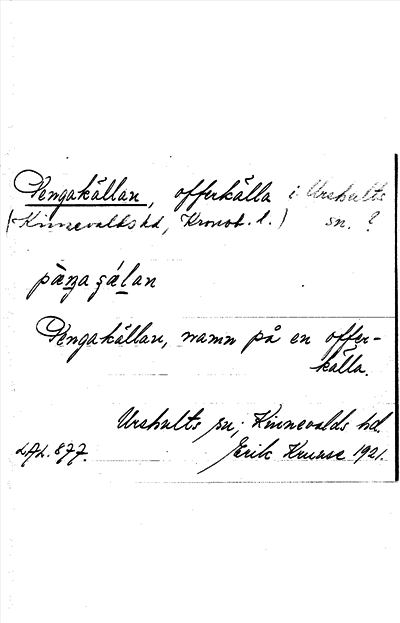 Pengakällan, offerkälla i Urshults
(Kinnevalds hd, Kronob. l.) sn. ?
pàŋa ʂálan
Pengakällan, namn på en offer-
källa.
Urshults sn; Kinnevalds hd.
LAL. 877. Erik Kruuse 1921.